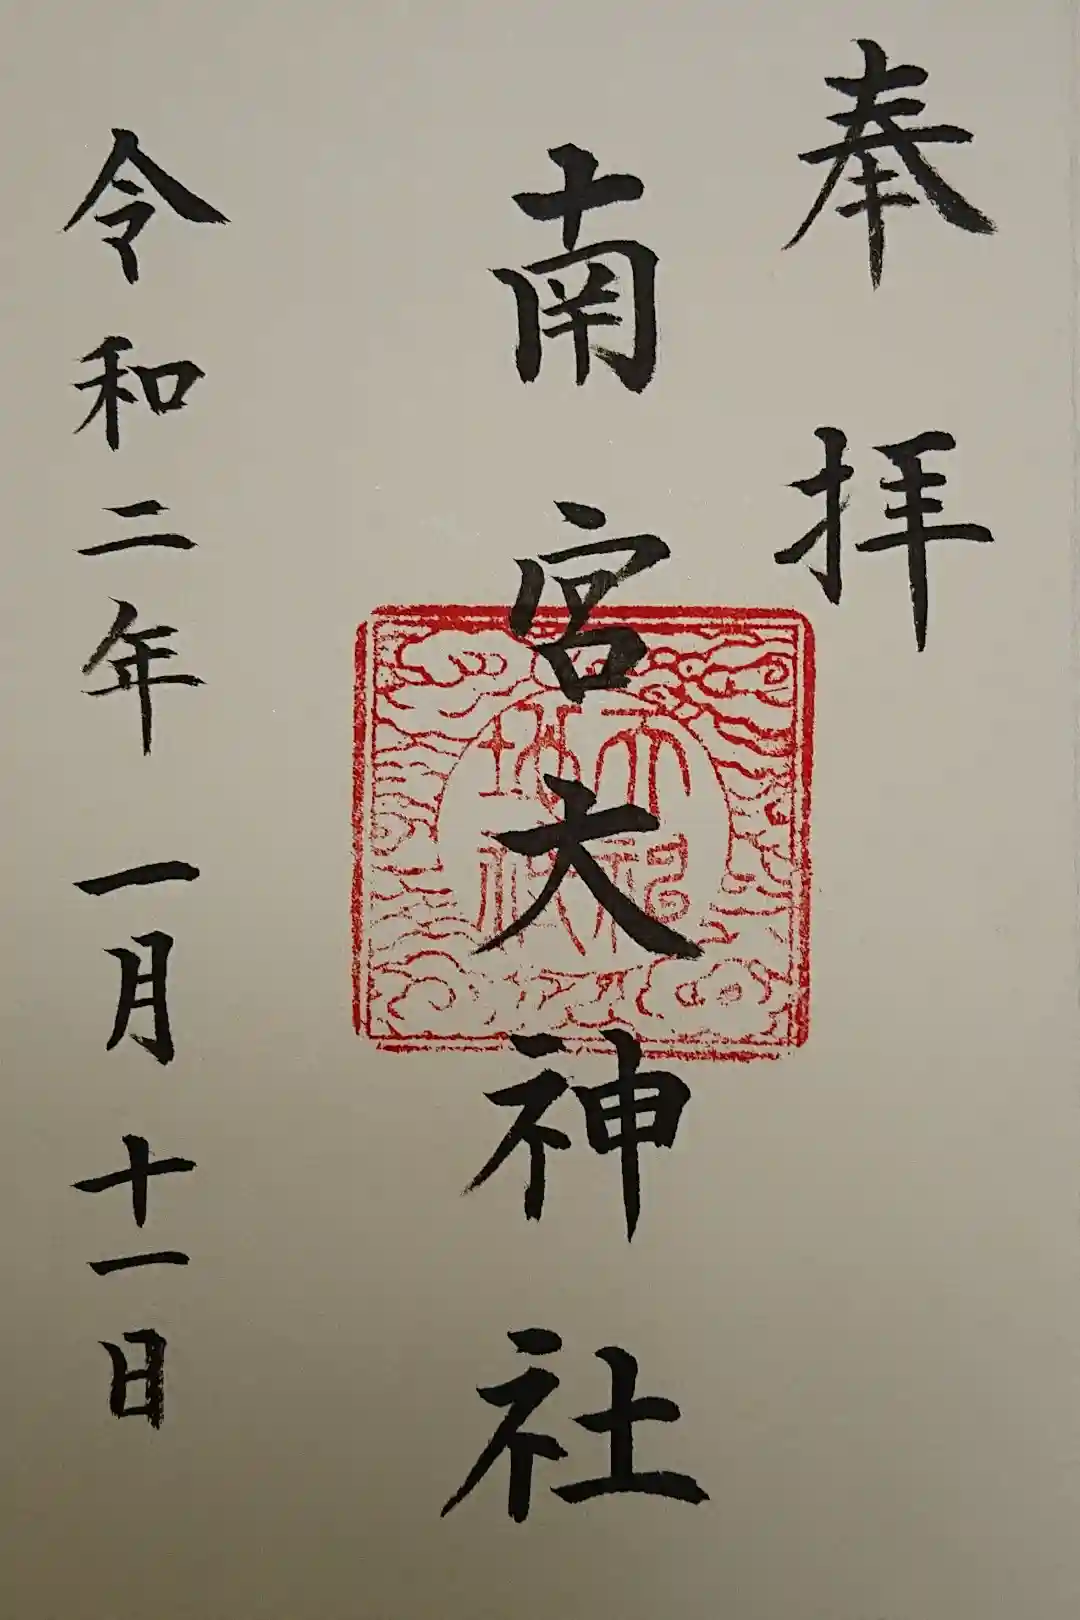 奉拝
南宮大神社
天祀地祇
令和二年一月十一日